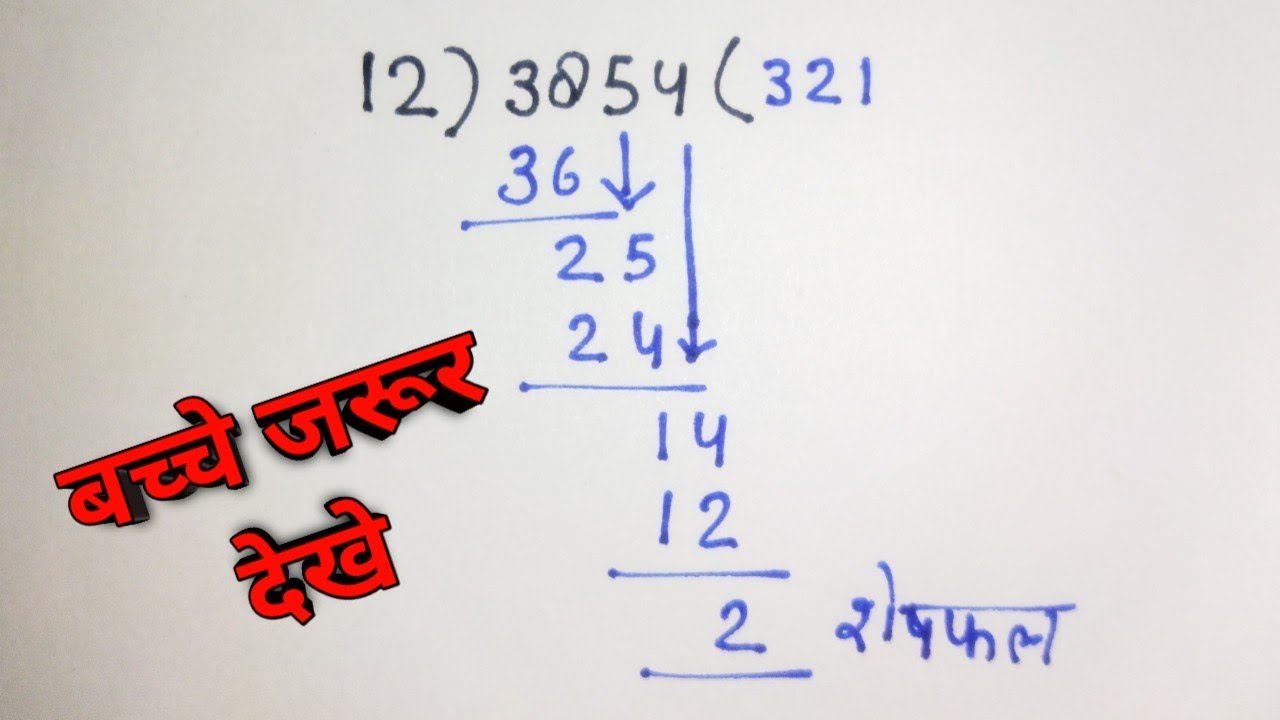 12) 3854 (321
36
25
24
14
12
2 शेषफल
बच्चे जरूर
देखे